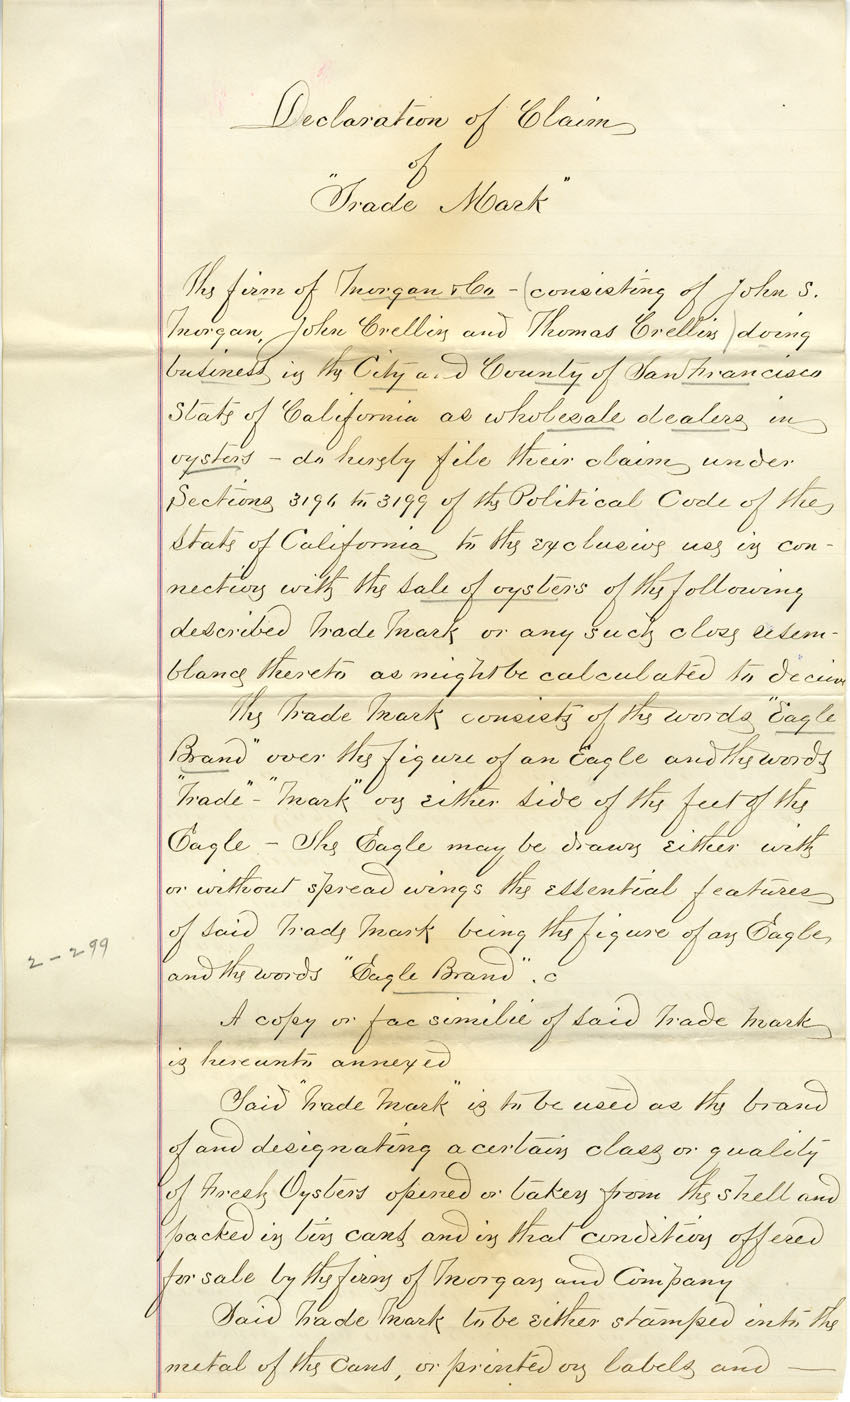 Declaration of Claim
of
"Trade Mark"
The firm of Morgan & Co - (consisting of John S.
Morgan, John Crellin and Thomas Crellin) doing
business in the City and County of San Francisco
State of California as wholesale dealers in
oysters - do hereby file their claim under
Sections 3196 to 3199 of the Political Code of the
State of California to the exclusive use in con-
nection with the sale of oysters of the following
described Trade Mark or any such close resem-
blance thereto as might be calculated to deceive
The Trade Mark consists of the words "Eagle
Brand" over the figure of an Eagle and the words
"Trade" - "Mark" on either side of the feet of the
Eagle - The Eagle may be drawn either with
or without spread wings the essential features
of said Trade Mark being the figure of an Eagle
and the words "Eagle Brand".
2-299
A copy or fac similie of said Trade Mark
is hereunto annexed
Said "Trade Mark" is to be used as the brand
of and designating a certain class or quality
of Fresh Oysters opened or taken from the shell and
packed in tin cans and in that condition offered
for sale by the firm of Morgan and Company
Said Trade Mark to be either stamped into the
metal of the cans, or printed on labels and —